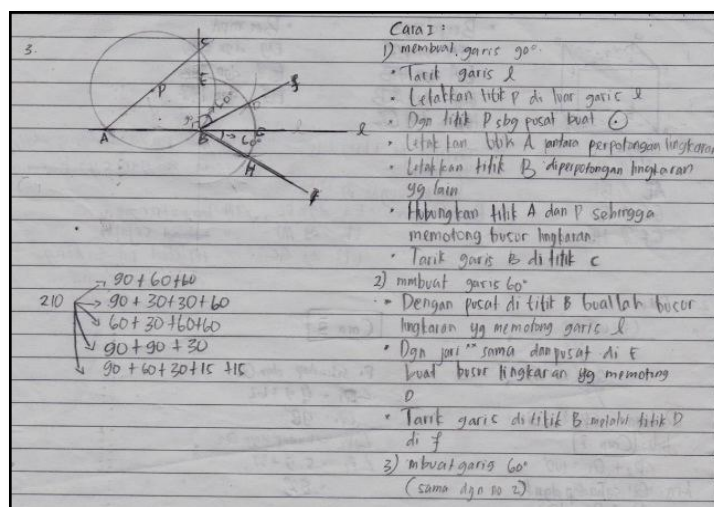 3.
C
E
P
60°
f
D
90°
A
B
60°
l
H
210
90 + 60 + 60
90 + 30 + 30 + 60
60 + 30 + 60 + 60
90 + 90 + 30
90 + 60 + 30 + 15 + 15
Cara I :
1) membuat garis 90°.
• Tarik garis l
• Letakkan titik P di luar garis l
• Dgn titik P sbg pusat buat ⊙
• Letakkan titik A antara perpotongan lingkaran
• Letakkan titik B diperpotongan lingkaran
yg lain
• Hubungkan titik A dan P sehingga
memotong busur lingkaran.
• Tarik garis B di titik C
2) mmbuat garis 60°
• Dengan pusat di titik B buatlah busur
lingkaran yg memotong garis l
• Dgn jari" sama dan pusat di E
buat busur lingkaran yg memotong
D
• Tarik garis di titik B melalui titik D
di f
3) mbuat garis 60°
(sama dgn no 2)